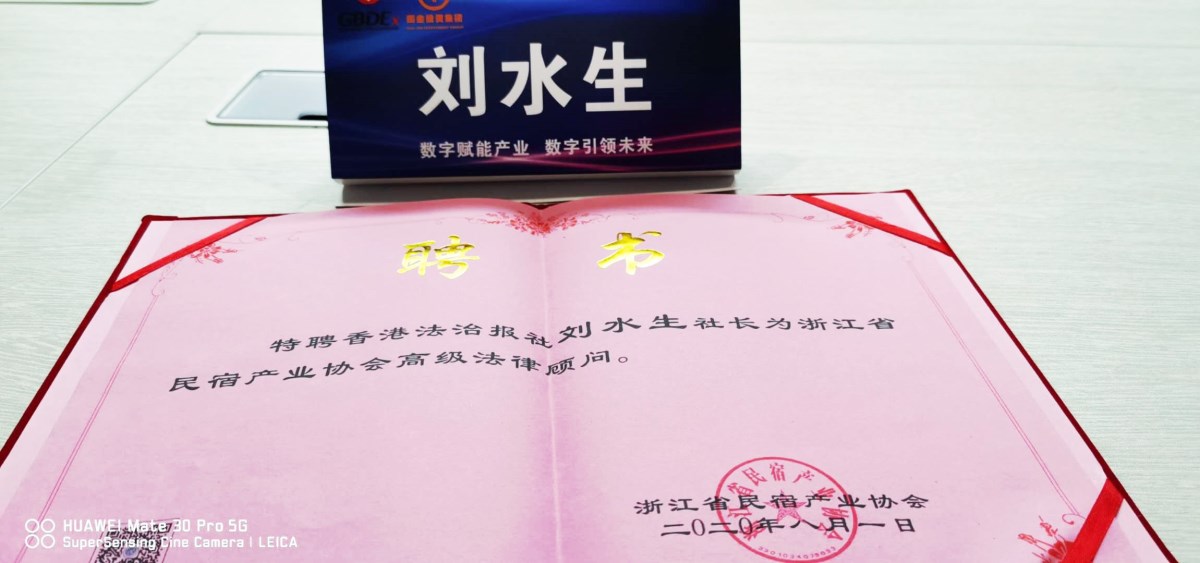 GBDEx
刘水生
数字赋能产业 数字引领未来
聘书
特聘香港法治报社刘水生社长为浙江省
民宿产业协会高级法律顾问。
浙江省民宿产业协会
浙江省民宿产业协会
二〇二〇年八月一日
HUAWEI Mate 30 Pro 5G
SuperSensing Cine Camera | LEICA